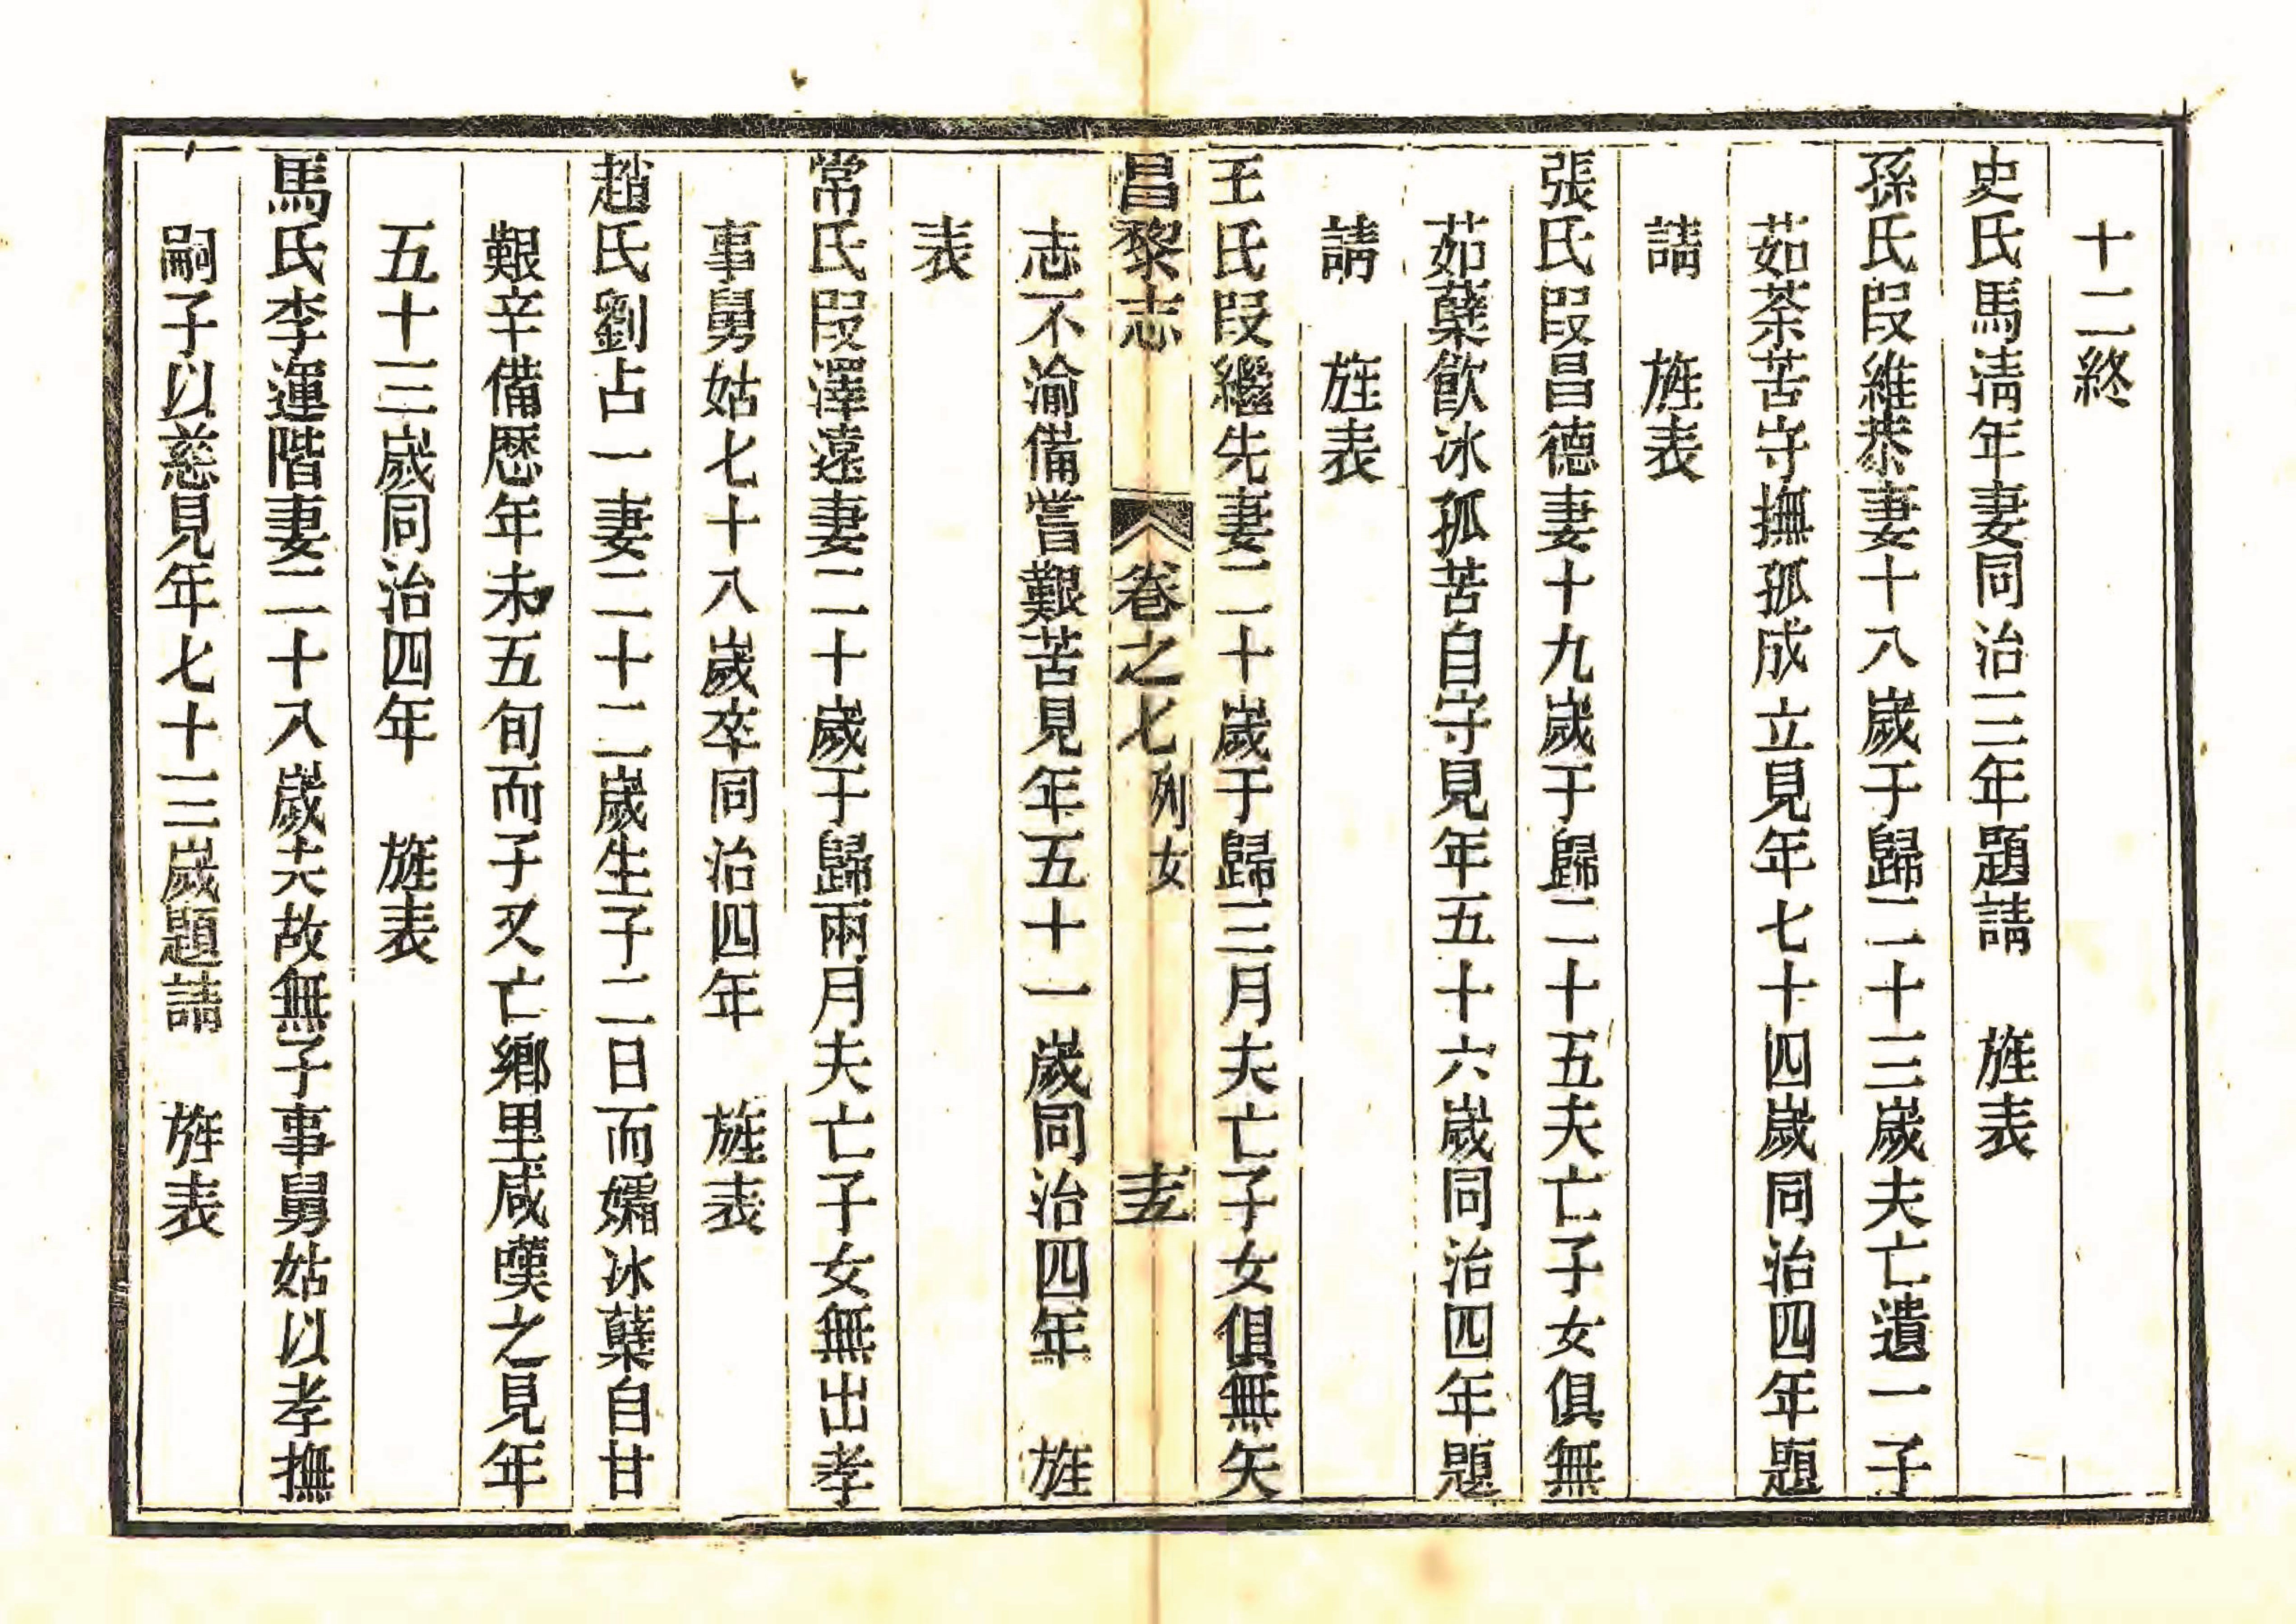 十二終
史氏馬淸年妻同治三年題請　旌表
孫氏段維恭妻十八歲于歸二十三歲夫亡遺一子
茹荼苦守撫孤成立見年七十四歲同治四年題
請　旌表
張氏段昌德妻十九歲于歸二十五夫亡子女俱無
茹蘗飮冰孤苦自守見年五十六歲同治四年題
請　旌表
王氏段繼先妻二十歲于歸三月夫亡子女俱無矢
昌黎志　卷之七 列女　十五
志不渝備嘗艱苦見年五十一歲同治四年　旌
表
常氏段澤遠妻二十歲于歸兩月夫亡子女無出孝
事舅姑七十八歲卒同治四年　旌表
趙氏劉占一妻二十二歲生子二日而孀冰蘗自甘
艱辛備歷年未五旬而子又亡鄉里咸嘆之見年
五十三歲同治四年　旌表
馬氏李運階妻二十八歲夫故無子事舅姑以孝撫
嗣子以慈見年七十三歲題請　旌表